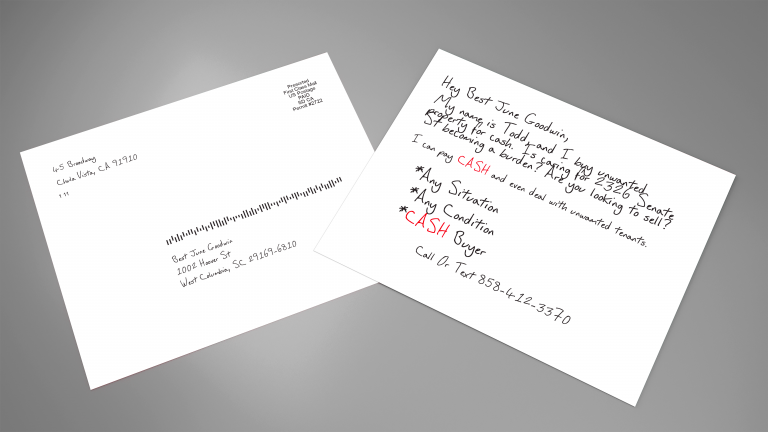 Presorted
First Class Mail
US Postage
PAID
SD CA
Permit #2722
45 Broadway
Chula Vista, CA 91910
Best June Goodwin
1002 Hoover St
West Columbia, SC 29169-6810
Hey Best June Goodwin,
My name is Todd, and I buy unwanted
property for cash. Is caring for 2326 Senate
St becoming a burden? Are you looking to sell?
I can pay CASH and even deal with unwanted tenants.
*Any Situation
*Any Condition
*CASH Buyer
Call Or Text 858-412-3370